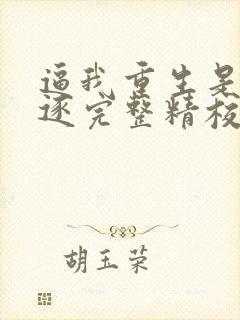 逼我重生是
逐完整精校
胡玉荣